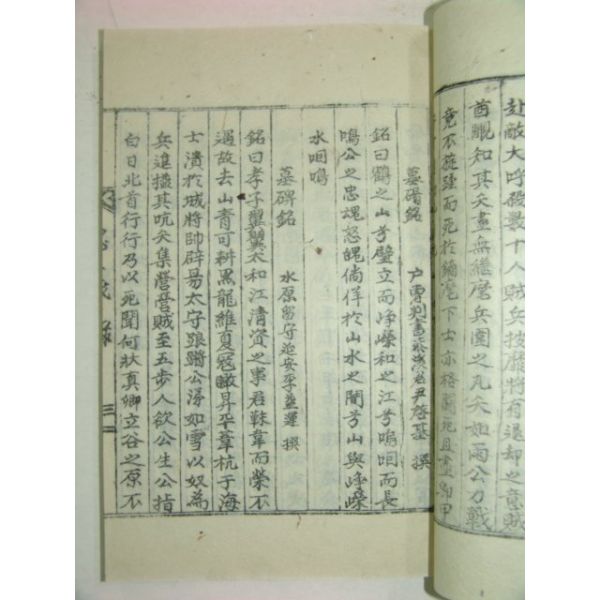 赴敵大呼殺數十人賊兵披靡將有退却之意賊
酋覘知其矢盡無繼麾兵圍之凡矢如雨公力戰
竟不旋踵而死於鏑麾下士亦
墓碣銘 戶曹判書 尹 撰
銘曰鶴之山兮壁立而崢嶸和之江兮嗚咽而長
鳴公之忠魂怒魄倘佯於山水之間兮山與崢嶸
水咽鳴
墓碑銘 水原留守延安李益運 撰
銘曰孝子翼翼太和江清資之事君靺韋而榮不
遇故去山青可耕黑龍維夏寇瞰昇平葦杭于海
士潰於城將帥辟易太守踉蹡公淂如雪以奴為
兵進據其吭矢集營營賊至五步人欲公生公指
白日北首行行乃以死聞何狀真卿立谷之原不
三